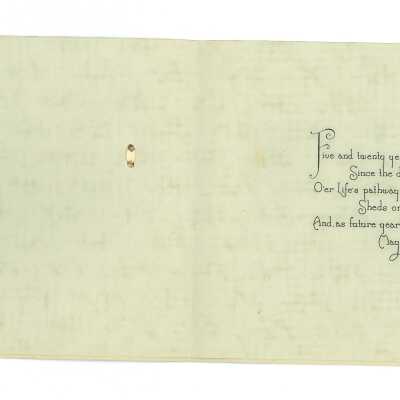 Five and twenty ye
Since the d
O'er Life's pathway
Sheds on
And, as future year
May